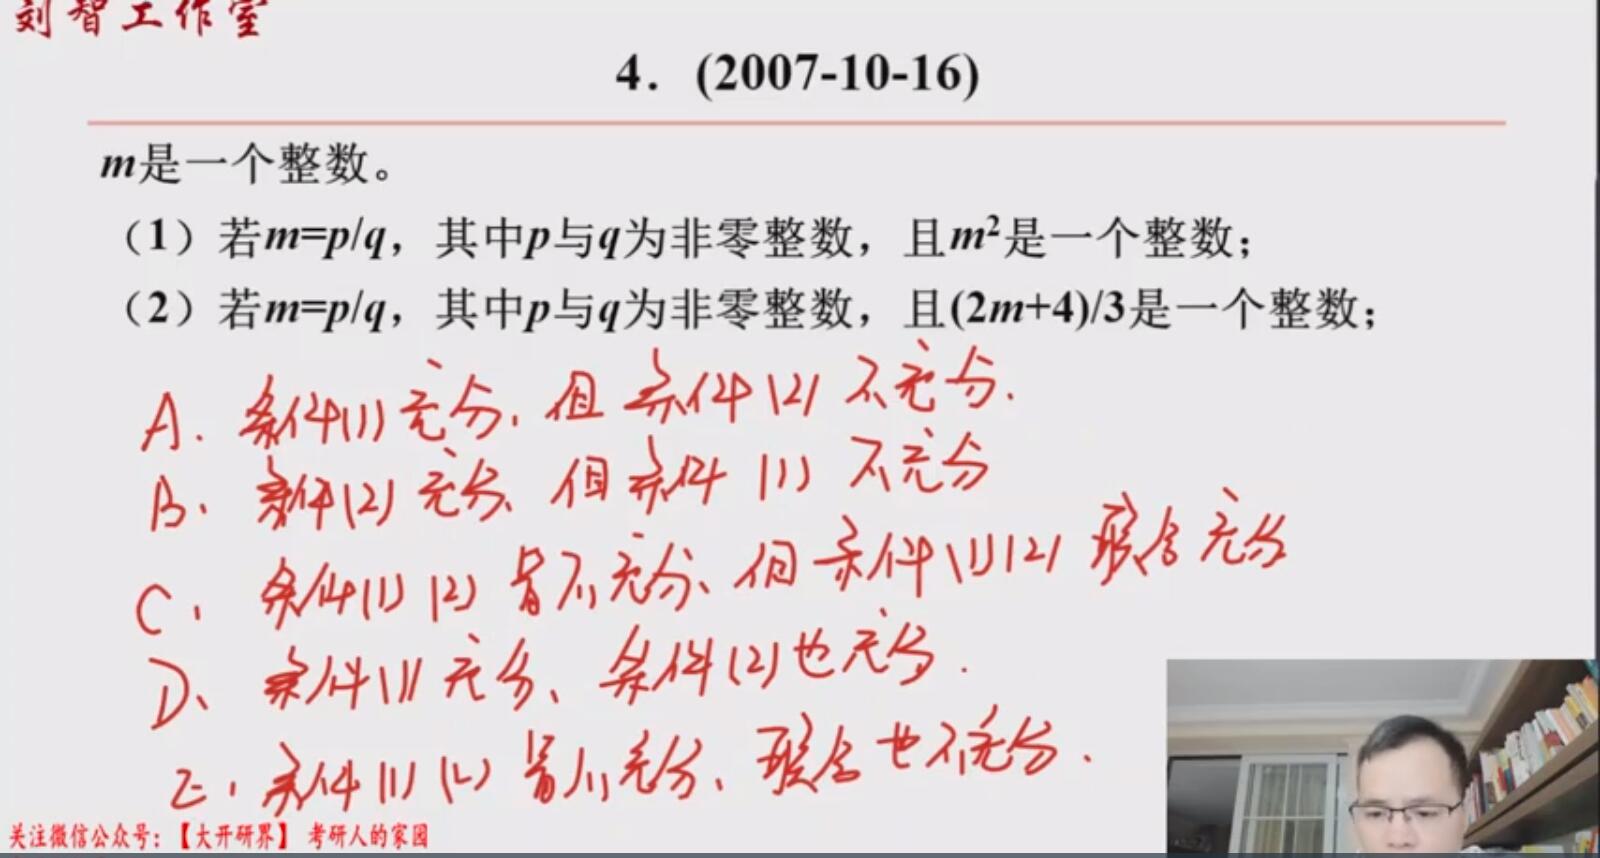 刘智工作室
4. (2007-10-16)
m是一个整数。
（1）若m=p/q，其中p与q为非零整数，且m²是一个整数；
（2）若m=p/q，其中p与q为非零整数，且(2m+4)/3是一个整数；
A. 条件(1)充分，但条件(2)不充分.
B. 条件(2)充分，但条件(1)不充分
C. 条件(1)(2)皆不充分、但条件(1)(2)联合充分
D、条件(1)充分、条件(2)也充分.
E. 条件(1)(2)皆不充分、联合也不充分.
关注微信公众号：【大开研界】 考研人的家园